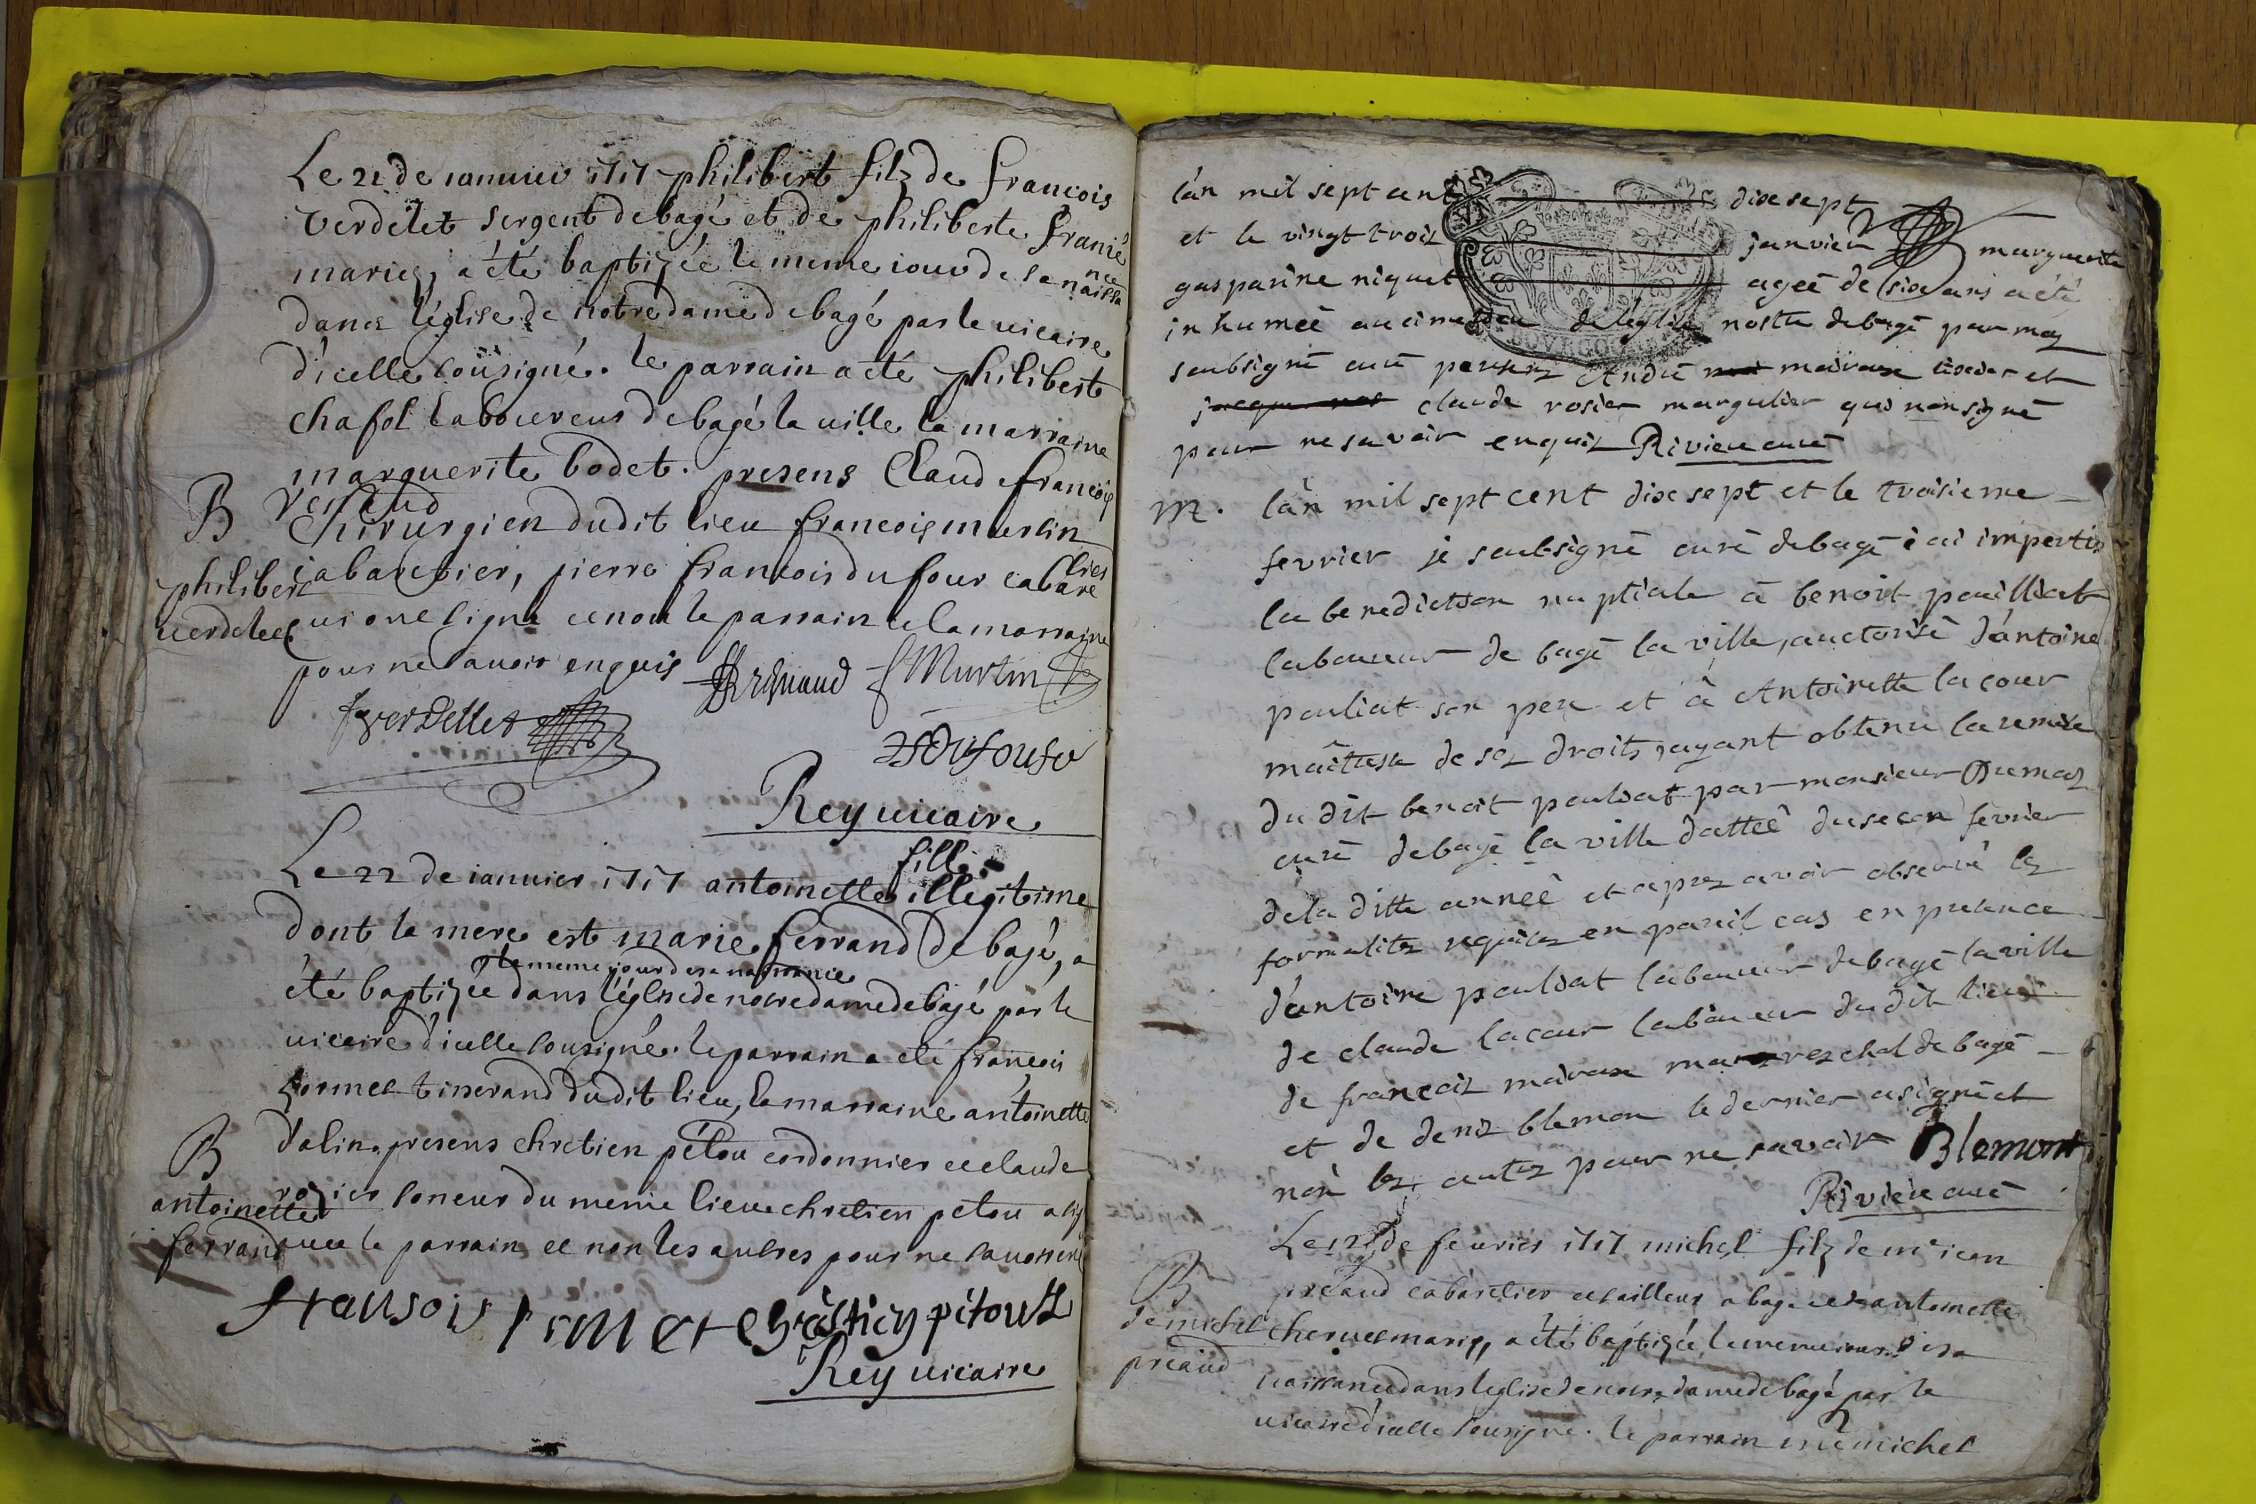 Le 21 de ianuier 1717 philibert filz de francois
Verdelet sergent de bagé et de philiberte franié
mariez, a été baptizée le meme iour de sa naissance
dans l'église de notre dame de bagé par le uicaire
d'icelle sousigné. le parrain a été philibert
chafol laboureur de bagé la uille la marraine
marguerite bodet. presens Claud francois
B
chirurgien dudit lieu francois murlin
philibert
cabaretier, pierre francois dufour cabaretier
uerdelet
qui ont signé et non le parrain et la marraine
pour ne sauoir enquis
Murlin
fverdellet
Dufour
Rey uicaire
fille
Le 22 de ianuier 1717 antoinette illégitime
dont la mere est marie ferrand de bagé, a
le meme iour de sa naissance
été baptizée dans l'église de notre dame de bagé par le
uicaire d'icelle sousigné. le parrain a eté francois
tisserand dudit lieu, la marraine antoinette
dalin. presens chretien petou cordonnier et claude
B
rosier soneur du meme lieu chretien petou a sig
antoinette
ferrand
auec le parrain et non les autres pour ne
fransois
pitout
Rey uicaire
l'an mil sept cent dixsept
et le vingt trois janvier marguerite
gasparine niquet ageé de six ans a été
inhumeé au cimetiere de l'eglise nostre de bagé par moy
soubsigné curé presens André mairoux et
claude rosier margulier qui non signé
pour ne savoir enquis Riviere curé
m.
l'an mil sept cent dixsept et le troisieme
fevrier je soubsigné curé de bagé ai imperti
la benediction nuptiale à benoit pouilliat
laboureur de bagé la ville, auctorisé d'antoine
pouliat son pere et à Antoinette lacour
maîtresse de ses droits, ayant obtenu la remise
du dit benoit pouliat par monsieur Dumas
curé de bagé la ville datteé du secon fevrier
de la ditte anneé et apres avoir observé les
formalites requises en pareil cas en presence
d'antoine pouliat laboureur de bagé la ville
de claude lacour laboureur du dit lieu
de francois mairoux mareschal de bagé
et de denis blemon le dernier a signé et
non les autres pour ne savoir Blemont
Riviere curé
Le 12 de feurier 1717 michel filz de mr iean
B
préaud cabaretier et tailleur a bagé et antoinette
de michel
mariez, a été baptizée, le meme iour de sa
préaud
naissance dans l'eglise de notre dame de bagé par le
uicaire d'icelle sousigné. le parrain michel